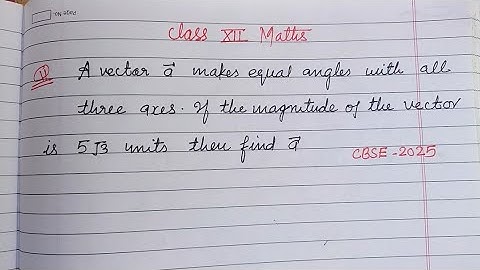 Page No.
Class XII Maths
Q A vector a⃗ makes equal angles with all
three axes. If the magnitude of the vector
is 5√3 units then find a⃗
CBSE-2025